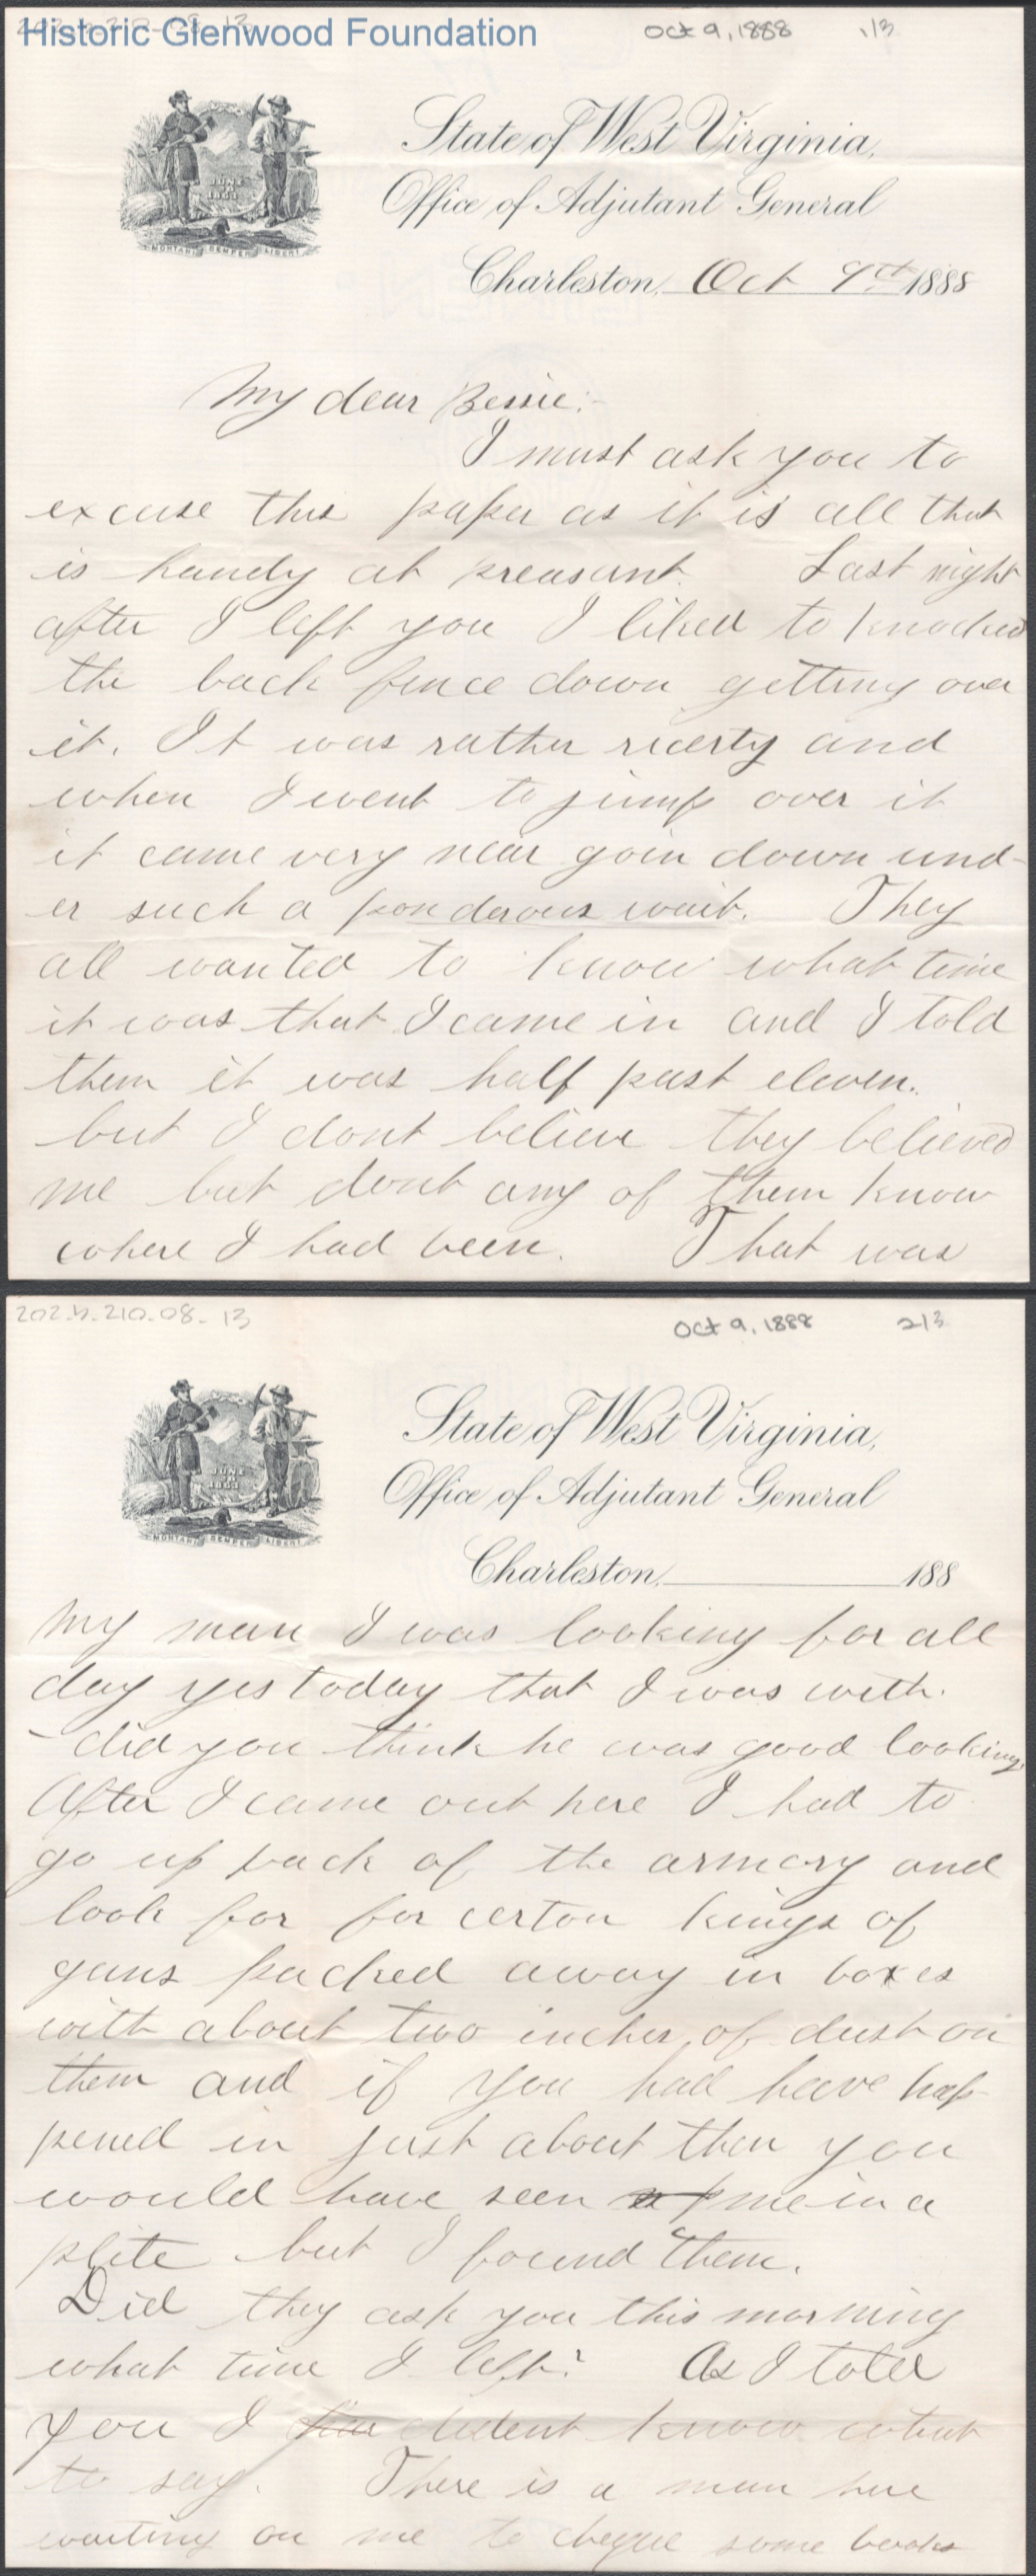 Historic Glenwood Foundation
Oct 9, 1888 1/3
JUNE
20
1863
MONTANI SEMPER LIBERI
State of West Virginia,
Office of Adjutant General
Charleston, Oct 9th 1888
My dear Bessie:-
I must ask you to
excuse this paper as it is all that
is handy at preasant. Last night
after I left you I liked to knocked
the back fence down getting over
it. It was rather ricerty and
when I went to jump over it
it came very near goin down und-
er such a ponderous wait. They
all wanted to know what time
it was that I came in and I told
them it was half past eleven.
but I dont believe they believed
me but dont any of them know
where I had been. That was
202.4.210.08-13
Oct 9, 1888 2/3
JUNE
20
1863
MONTANI SEMPER LIBERI
State of West Virginia,
Office of Adjutant General
Charleston, 188
My man I was looking for all
day yestoday that I was with.
did you think he was good looking
After I came out here I had to
go up back of the armory and
look for for certon kings of
guns packed away in boxes
with about two inches of dust on
them and if you had have hap-
pened in just about then you
would have seen me in a
plite but I found them.
Did they ask you this morning
what time I left? As I told
you I dident know what
to say. There is a man here
waiting on me to cheque some books